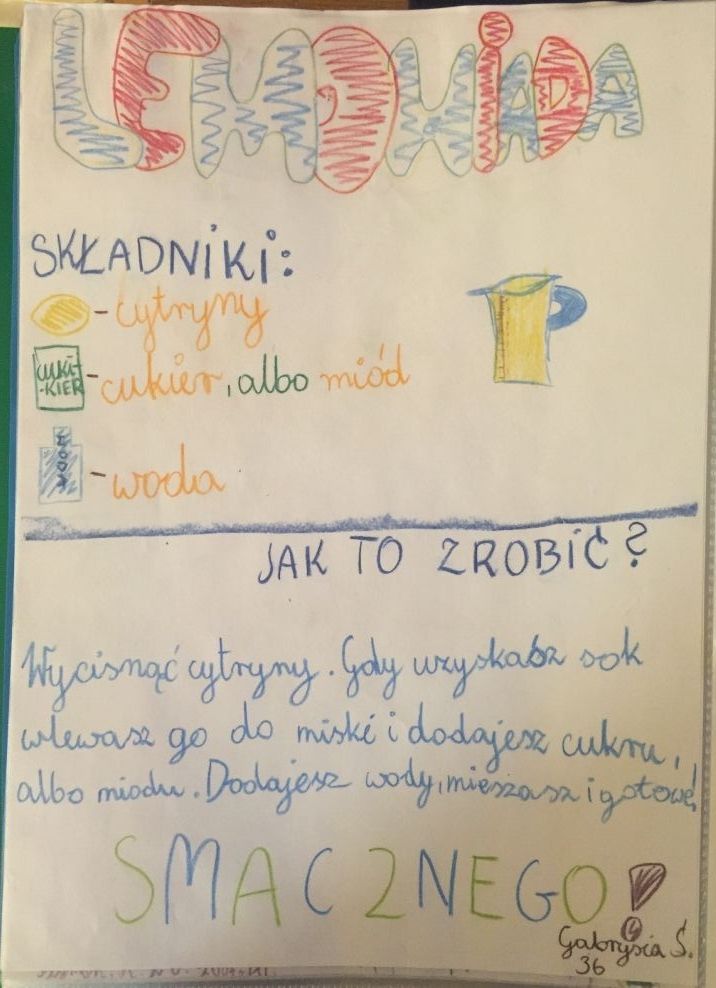 LEMONiADA
SKŁADNiKi:
- cytryny
CUKI-
-KIER
- cukier, albo miód
WODA
- woda
JAK TO ZROBIĆ?
Wycisnąć cytryny. Gdy uzyskasz sok
wlewasz go do miski i dodajesz cukru,
albo miodu. Dodajesz wody, mieszasz i gotowe!
SMACZNEGO!
Gabrysia Ś.
36